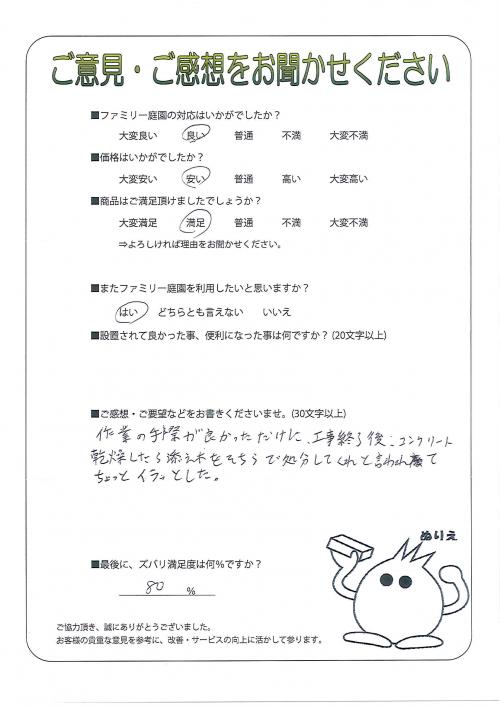 ご意見・ご感想をお聞かせください
■ファミリー庭園の対応はいかがでしたか？
大変良い 良い 普通 不満 大変不満
■価格はいかがでしたか？
大変安い 安い 普通 高い 大変高い
■商品はご満足頂けましたでしょうか？
大変満足 満足 普通 不満 大変不満
⇒よろしければ理由をお聞かせください。
■またファミリー庭園を利用したいと思いますか？
はい どちらとも言えない いいえ
■設置されて良かった事、便利になった事は何ですか？(20文字以上)
■ご感想・ご要望などをお書きくださいませ。(30文字以上)
作業の手際が良かっただけに、工事終了後、コンクリート
乾燥したら添え木をそちらで処分してくれと言われて
ちょっとイラッとした。
ぬりえ
■最後に、ズバリ満足度は何％ですか？
80 ％
ご協力頂き、誠にありがとうございました。
お客様の貴重な意見を参考に、改善・サービスの向上に活かして参ります。